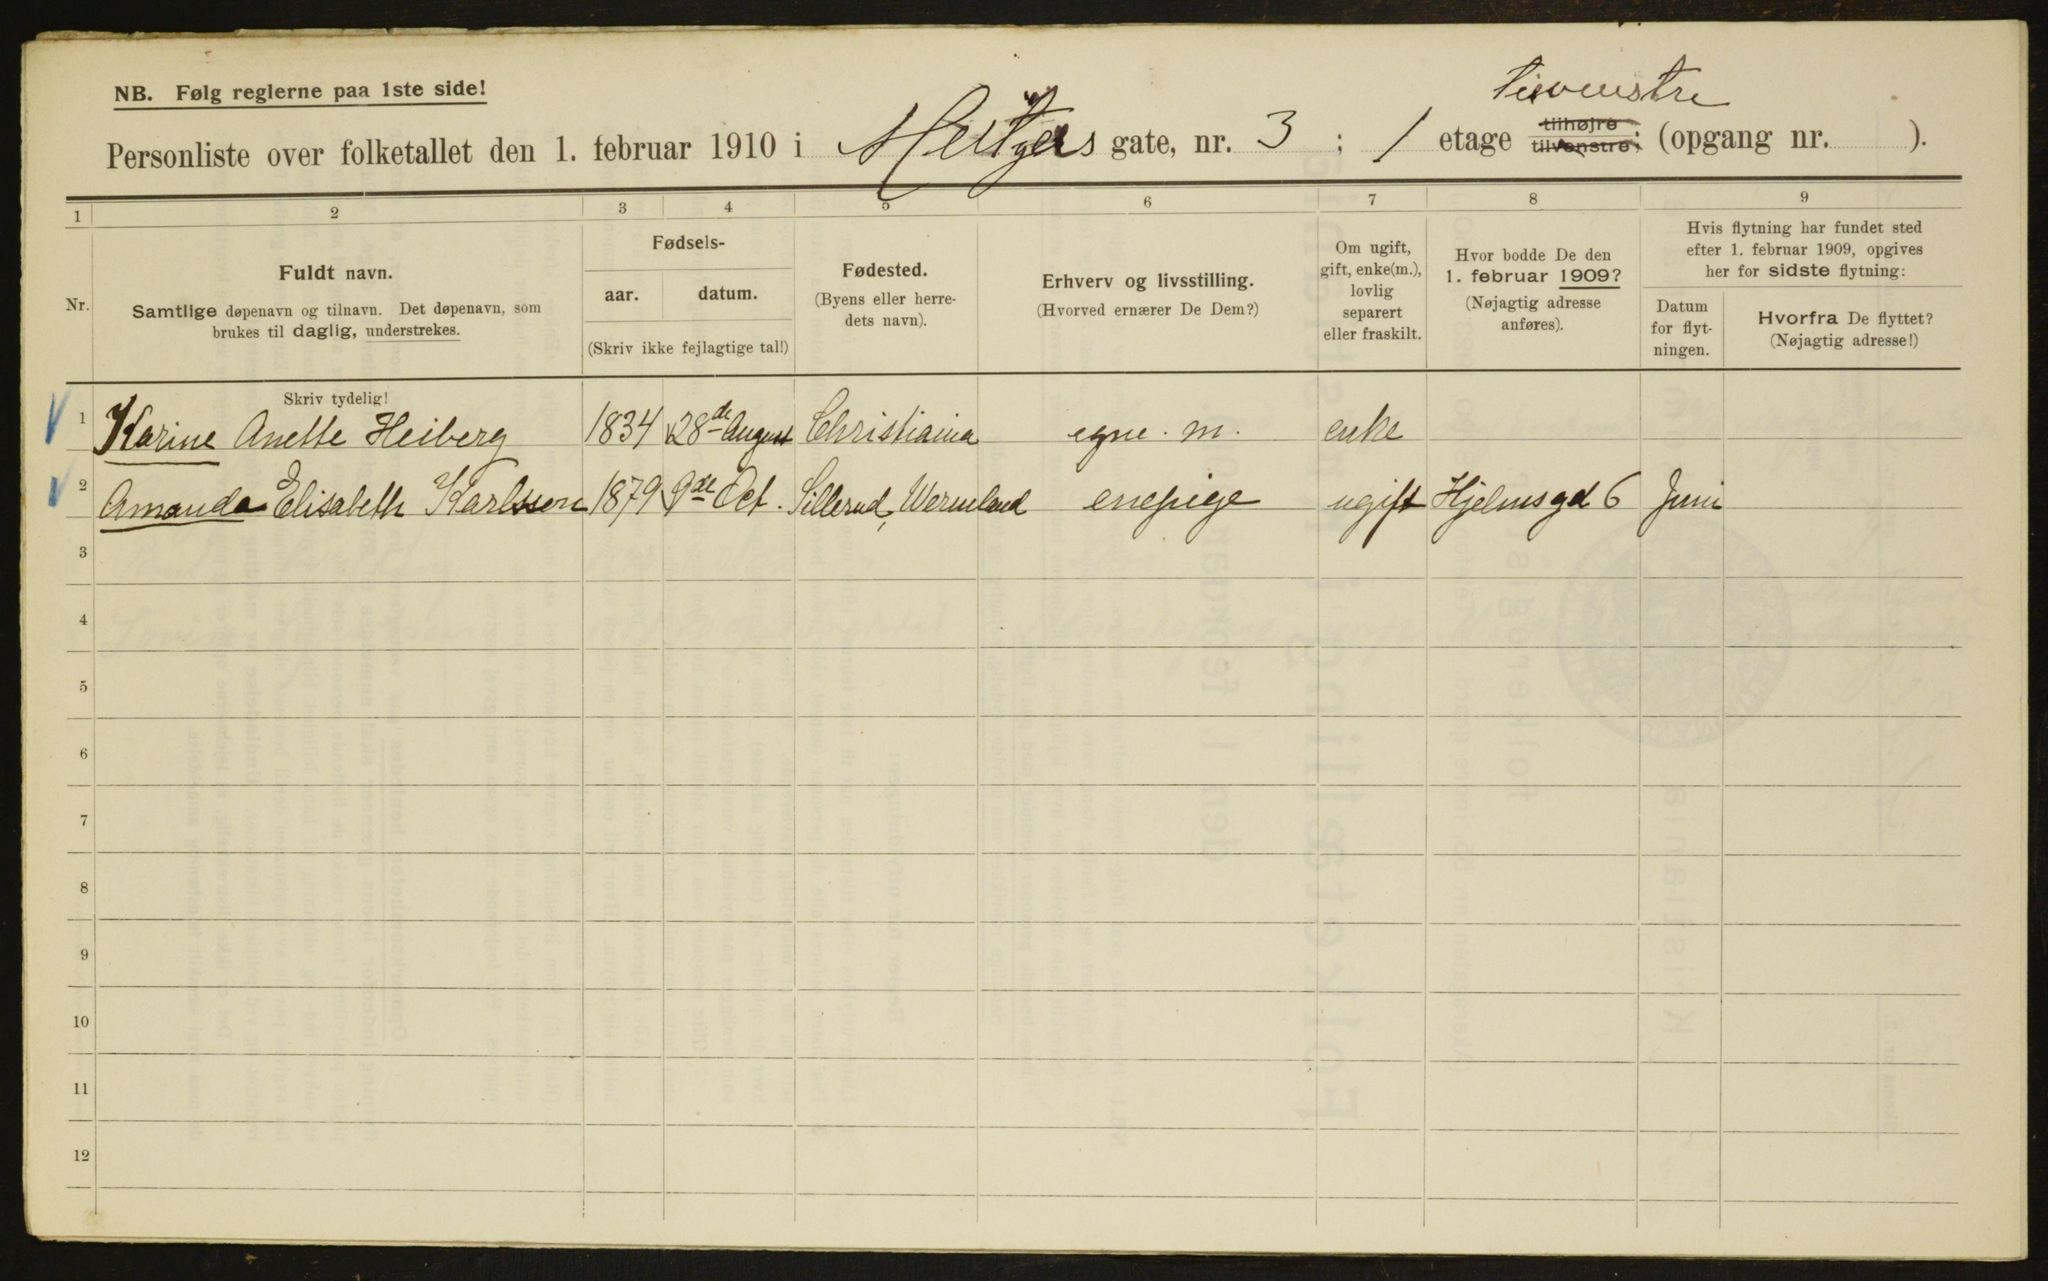 NB. Følg reglerne paa 1ste side!
tilvenstre
Personliste over folketallet den 1. februar 1910 i Meltzers gate, nr. 3 ; 1 etage tilhøjre tilvenstre; (opgang nr. ).
1 2 3 4 5 6 7 8 9
Nr.
Fuldt navn.
Samtlige døpenavn og tilnavn. Det døpenavn, som
brukes til daglig, understrekes.
Fødsels-
aar. datum.
(Skriv ikke fejlagtige tal!)
Fødested.
(Byens eller herre-
dets navn).
Erhverv og livsstilling.
(Hvorved ernærer De Dem?)
Om ugift,
gift, enke(m.),
lovlig
separert
eller fraskilt.
Hvor bodde De den
1. februar 1909?
(Nøjagtig adresse
anføres).
Hvis flytning har fundet sted
efter 1. februar 1909, opgives
her for sidste flytning:
Datum
for flyt-
ningen.
Hvorfra De flyttet?
(Nøjagtig adresse!)
Skriv tydelig!
1 Karine Anette Heiberg 1834 28de August Christiania egne. m. enke
2 Amanda Elisabeth Karlsson 1879 9de Oct. Sillerud, Wermland enepige ugift Hjelmsgd 6 Juni
3
4
5
6
7
8
9
10
11
12